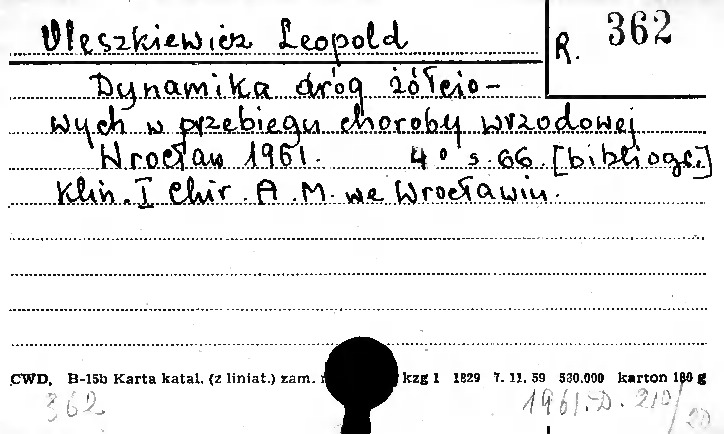 Uleszkiewicz Leopold
R. 362
Dynamika dróg żółcio-
wych w przebiegu choroby wrzodowej
Wrocław 1961. 4° s. 66. [bibliogr.]
Klin. I Chir. A. M. we Wrocławiu.
CWD, B-15b Karta katal. (z liniat.) zam. kzg 1 1829 7. 11. 59 530.000 karton 180 g
362 1961.D. 210/20